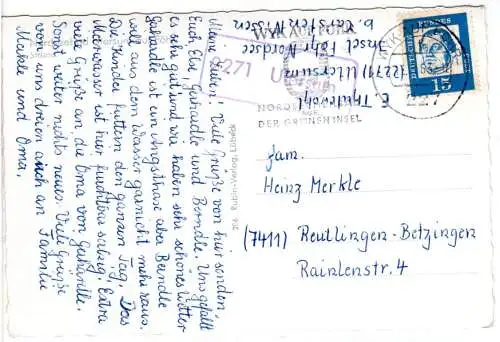 Meine Lieben! Viele Grüße von hier senden
Euch Else, Gerhardle und Berndle. Uns gefällt
es sehr gut und wir haben sehr schönes Wetter
Gerhardle ist ein Angsthase aber Berndle
will aus dem Wasser garnicht mehr raus.
Die Kinder futtern den ganzen Tag. Das
Meerwasser ist hier furchtbar salzig. Extra
viele Grüße an die Oma von Gerhärdle.
Sonst weiter nichts neues. Viele Grüße
von uns dreien auch an Familie
Merkle und Oma.
E.
(2271) Utersum
Insel Föhr Nordsee
b. Carsten
2271
Utersum
WYK AUF FÖHR
NORDSEE
DER GRÜNEN INSEL
DEUTSCHE BUNDESPOST
15
Rubin-Verlag Lübeck
Fam.
Heinz Merkle
(7411) Reutlingen-Betzingen
Rainlenstr. 4